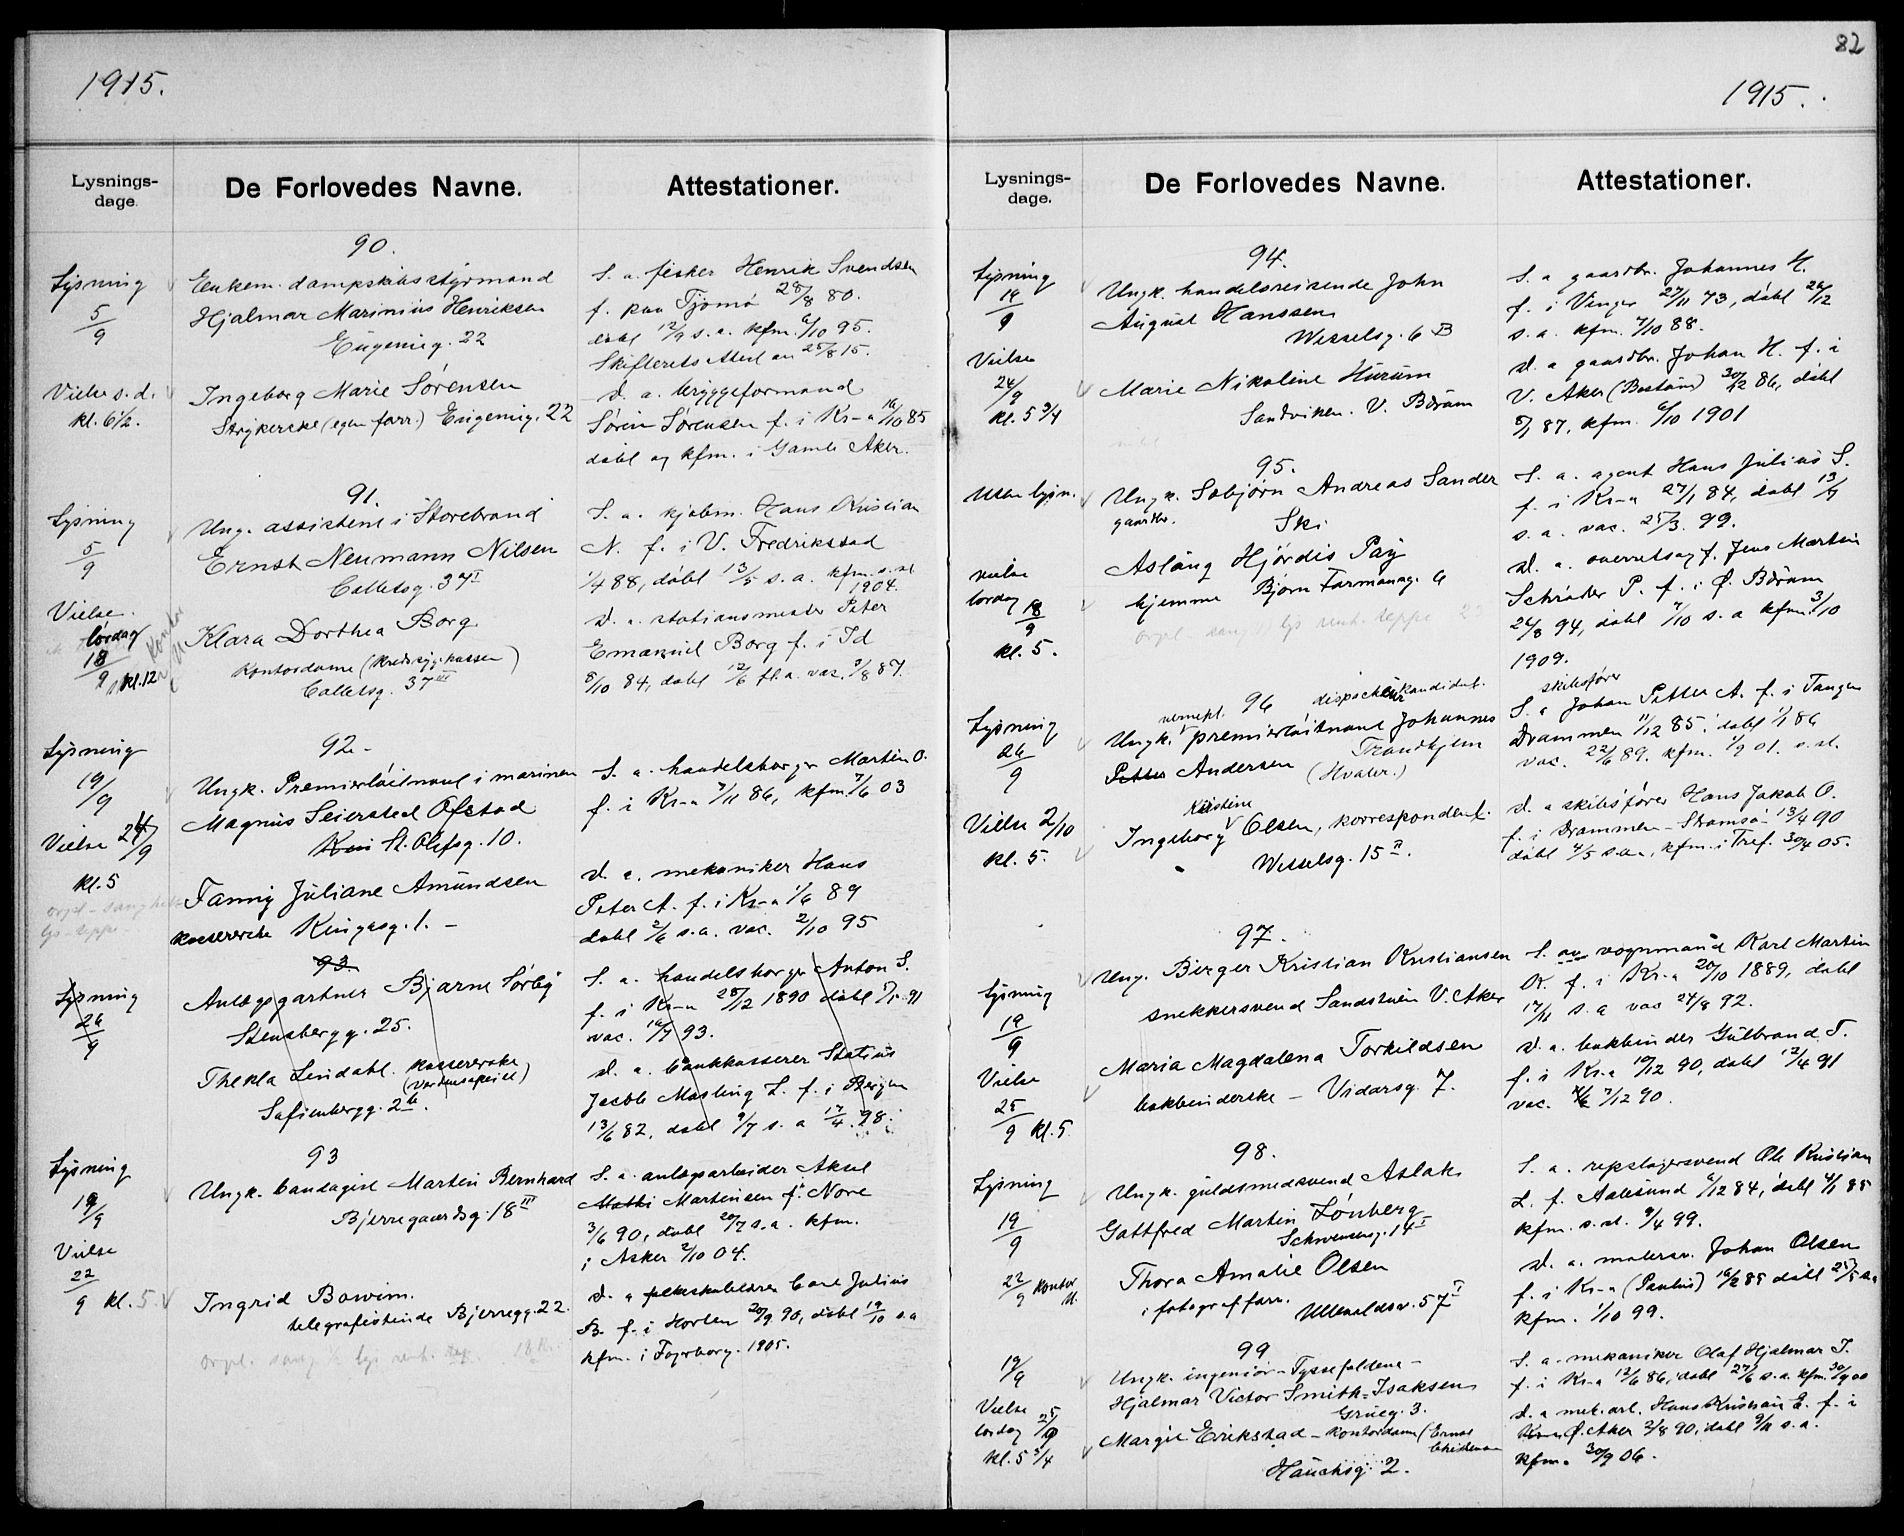 82
1915.
Lysnings-
dage.
De Forlovedes Navne.
Attestationer.
90.
Lysning
5/9
Vielse s. d.
kl. 6½.
Enkem. dampskibsstyrmand
Hjalmar Marinius Henriksen
Eugenieg. 22
Ingeborg Marie Sørensen
Strykerske (egen forr.) Eugenieg. 22
S. a. fisker Henrik Svendsen
f. paa Tjømø 28/8 80.
døbt 12/9 s. a. kfm. 6/10 95.
Skifterets Attest av 25/8 15.
d. a. bryggeformand
Søren Sørensen f. i Kr-a 16/10 85
døbt og kfm. i Gamle Aker.
91.
Lysning
5/9
Vielse.
lørdag
18/9 kl. 12
Ung. assistent i Storebrand
Ernst Neumann Nilsen
Colletsg. 37 I
Klara Dorthea Borg
Kontordame (Kredssygekassen)
Colletsg. 37 III
S. a. kjøbm. Hans Kristian
N. f. i V. Fredrikstad
1/4 88, døbt 13/5 s. a. kfm. s. st.
1904.
d. a. stationsmester Peter
Emanuel Borg f. i Id
8/10 84, døbt 12/6 s. a. vac. 9/8 87.
92.
Lysning
19/9
Vielse 24/9
kl. 5
Ungk. Premierløitnant i marinen
Magnus Seiersted Ofstad
St. Olafsg. 10.
Fanny Juliane Amundsen
kassererske Kingosg. 1.
S. a. handelsborger Martin O.
f. i Kr-a 7/11 86, kfm. 7/6 03
d. a. mekaniker Hans
Peter A. f. i Kr-a 1/6 89
døbt 2/6 s. a. vac. 2/10 95
93
Lysning
26/9
Anlægsgartner Bjarne Sørby
Stensbergg. 25.
Thekla Lindahl. kassererske
(Verdensspeilet)
Sofienbergg. 2 b.
S. a. handelsborger Anton S.
f. i Kr-a 28/12 1890 døbt 91
vac. 16/7 93.
d. a. bankkasserer Statius
Jacob Masting L. f. i Bergen
13/6 82, døbt 9/7 s. a 17/4. 98.
93
Lysning
19/9
Vielse
22/9 kl. 5
Ungk. bandagist Martin Bernhard
Bjerregaardsg. 18 III
Ingrid Bowim.
telegrafistinde Bjerregg. 22.
S. a. anlægsarbeider Aksel
Martinsen f. Nore
3/6 90, døbt 20/7 s. a. kfm.
i Asker 2/10 04.
d. a folkeskolelærer Carl Julius
B. f. i Horten 20/9 90, døbt 19/10 s. a
kfm. i Fagerborg. 1905.
1915.
Lysnings-
dage.
De Forlovedes Navne.
Attestationer.
94.
Lysning
19/9
Vielse
24/9
kl. 5 3/4
Ungk. handelsreisende John
August Hanssen
Wesselsg. 6 B
Marie Nikoline Hurum
Sandviken. V. Bærum
S. a gaardbr. Johannes H.
f. i Vinger 27/11 73, døbt 26/12
s. a. kfm. 7/10 88.
d. a gaardbr. Johan H. f. i
V. Aker (Bestum) 30/12 86, døbt
87, kfm. 6/10 1901
95.
Uten lysn.
vielse
lørdag
18/9
kl. 5.
Ungk. Sebjørn Andreas Sander
gaardbr.
Ski
Aslaug Hjørdis Pay
hjemme Bjørn Farmannsg. 6
S. a. agent Hans Julius S.
f. i Kr-a 27/1 84, døbt 13/7
s. a. vac. 25/3. 99.
d. a. overretssagf. Jens Martin
Schrøder P. f. i Ø. Bærum
26/8 94, døbt 7/10 s. a kfm. 3/10
1909.
96
Lysning
26/9
Vielse 2/10
kl. 5.
vernepl. dispachørkandidat.
Ungk. premierløitnant Johannes
Petter Andersen Trondhjem
(Hvaler.)
Kristine
Ingeborg Olsen, korrespondent.
Wesselsg. 15 II.
skibsfører
S. a Johan Petter A. f. i Tangen
Drammen 11/12 85. døbt 1/1 86
vac. 22/6 89. kfm. 1/9 01. s. st.
d. a skibsfører Hans Jakob O.
f. i Drammen - Strømsø 13/4 90
døbt 4/5 s. a., kfm. i Tref. 30/4 05.
97.
Lysning
19/9
Vielse
25/9 kl. 5
Ung. Birger Kristian Kristiansen
snekkersvend Sandstuen V. Aker
Maria Magdalena Torkildsen
bokbinderske - Vidarsg. 7.
S. av vognmand Karl Martin
K. f. i Kr-a 20/10 1889, døbt
17/11 s. a vac 27/8 92.
d. a. bokbinder Gulbrand T.
f. i Kr-a 19/12 90, døbt 12/4 91
vac. 7/12 90.
98.
Lysning
19/9
22/9 kontor
Ungk. guldsmedsvend Aslak
Gottfred Martin Lønberg
Schwensensg. 14 I
Thora Amalie Olsen
i fotograf forr. Ullevoldsv. 57 I
S. a. repslagersvend Ole Kristian
L. f. Aalesund 6/12 84, døbt 4/1 85
kfm. s. st. 9/4 99.
d. a. malersv. Johan Olsen
f. i Kr-a (Paulus) 16/2 85 døbt 25/5 s. a
kfm. 1/10 99.
99
19/9
Vielse
lørdag 25/9
kl. 5 3/4
Ungk. ingeniør - Tyssefaldene -
Hjalmar Victor Smith-Isaksen
Grueg. 3.
Margit Erikstad - Kontordame (Ernst
Christensen
Hauchsg. 2.
S. a. mekaniker Olaf Hjalmar I.
f. i Kr-a 12/6 86, døbt 27/6 s. a. kfm. 30/9 00
d. a mek. arb. Hans Kristian E. f. i
Ø. Aker 2/8 90, døbt 9/11 s. a.
kfm. 30/9 06.